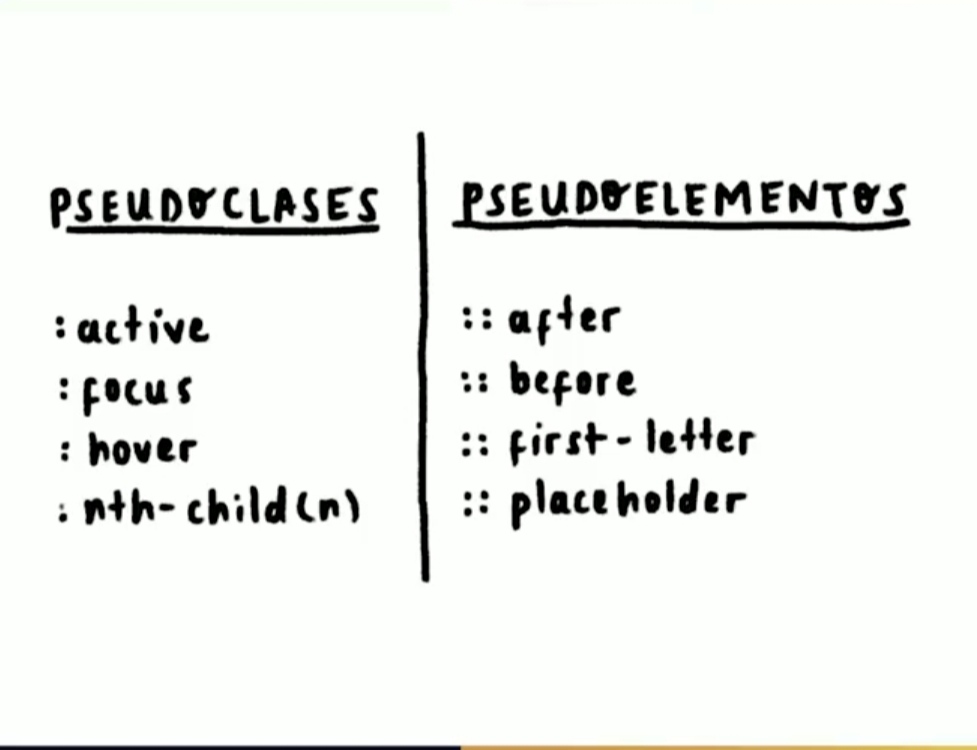 PSEUDOCLASES
:active
:focus
:hover
:nth-child(n)
PSEUDOELEMENTOS
::after
::before
::first-letter
::placeholder